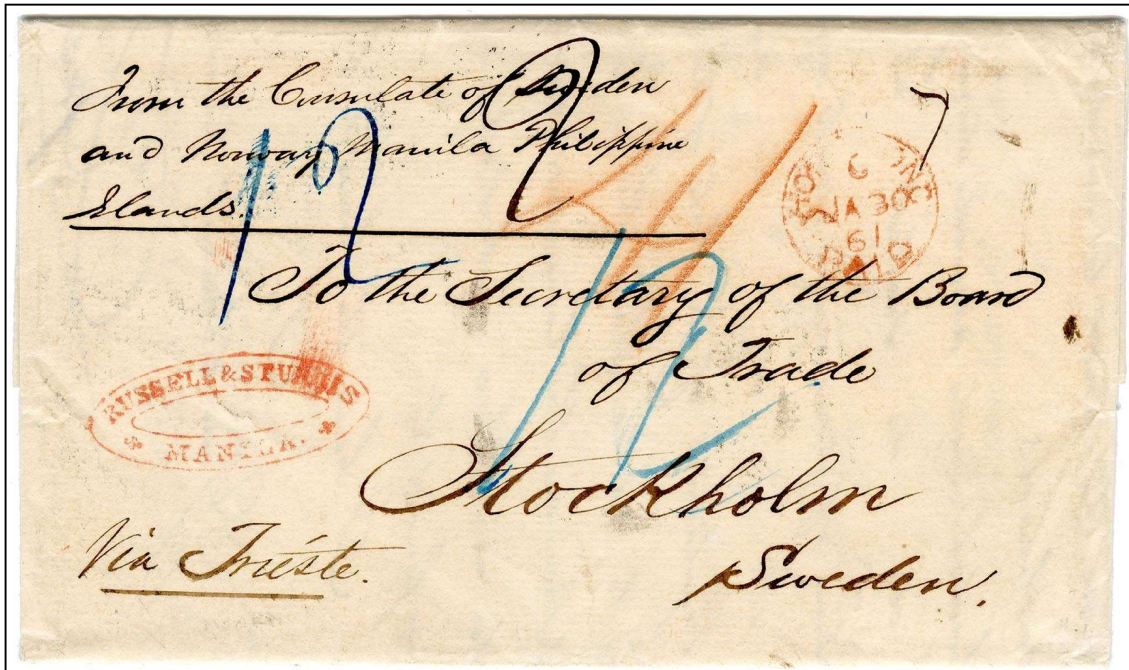 From the Consulate of Sweden
and Norway Manila Philippine
Islands.
2
12
4
7
HONG KONG
C
JA 30
61
PAID
To the Secretary of the Board
of Trade
12
RUSSELL & STURGIS
MANILA.
Stockholm
Via Trieste.
Sweden.